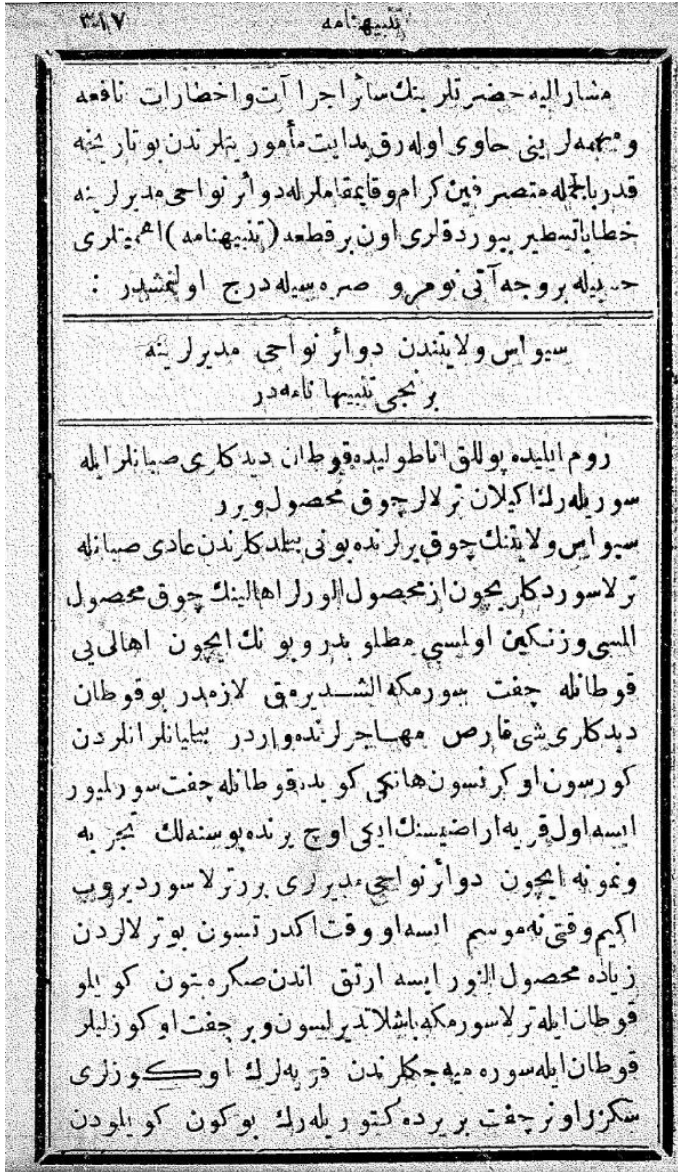 ٣١٧ تنبيهنامه
مشاراليه حضرتلرينك سائر اجراآت واخطارات نافعه
ومهمه لرينى حاوى اوله رق بدايت مأموريتلرندن بو تاريخه
قدر بالجمله متصرفين كرام وقايمقاملرله دوائر نواحى مديرلرينه
خطاباً تسطير بيوردقلرى اون بر قطعه (تنبيهنامه) اهميتلرى
حسبيله بروجه آتى نومرو صره سيله درج اولنمشدر :
سيواس ولايتندن دوائر نواحى مديرلرينه
برنجى تنبيهنامه در
روم ايليده پوللق اناطوليده قوطان ديدكلرى صبانلر ايله
سوريله رك اكيلان ترلالر چوق محصول ويرر
سيواس ولايتنك چوق يرلرنده بونى بيلمدكلرندن عادى صبانله
ترلا سوردكلريچون از محصول الورلر اهالينك چوق محصول
المسى وزنكين اولمسى مطلوبدر وبونك ايچون اهالى يى
قوطانله چفت سورمكه الشديرمق لازمدر بو قوطان
ديدكلرى شى قارص مهاجرلرنده واردر بيليانلر انلردن
كورسون اوكرنسون هانكى كويده قوطانله چفت سورلميور
ايسه اول قريه اراضيسنك ايكى اوچ يرنده بو سنه لك تجربه
ونمونه ايچون دوائر نواحى مديرلرى برر ترلا سورديروب
اكيم وقتى نه موسم ايسه او وقت اكدرتسون بو ترلالردن
زياده محصول النور ايسه ارتق اندن صكره بتون كويلو
قوطان ايله ترلا سورمكه باشلاتديرلسون وبر چفت اوكوزليلر
قوطان ايله سوره ميه جكلرندن قريه لرك اوكوزلرى
سكزر اونر چفت بر يرده كتوريله رك بوكون كويلودن